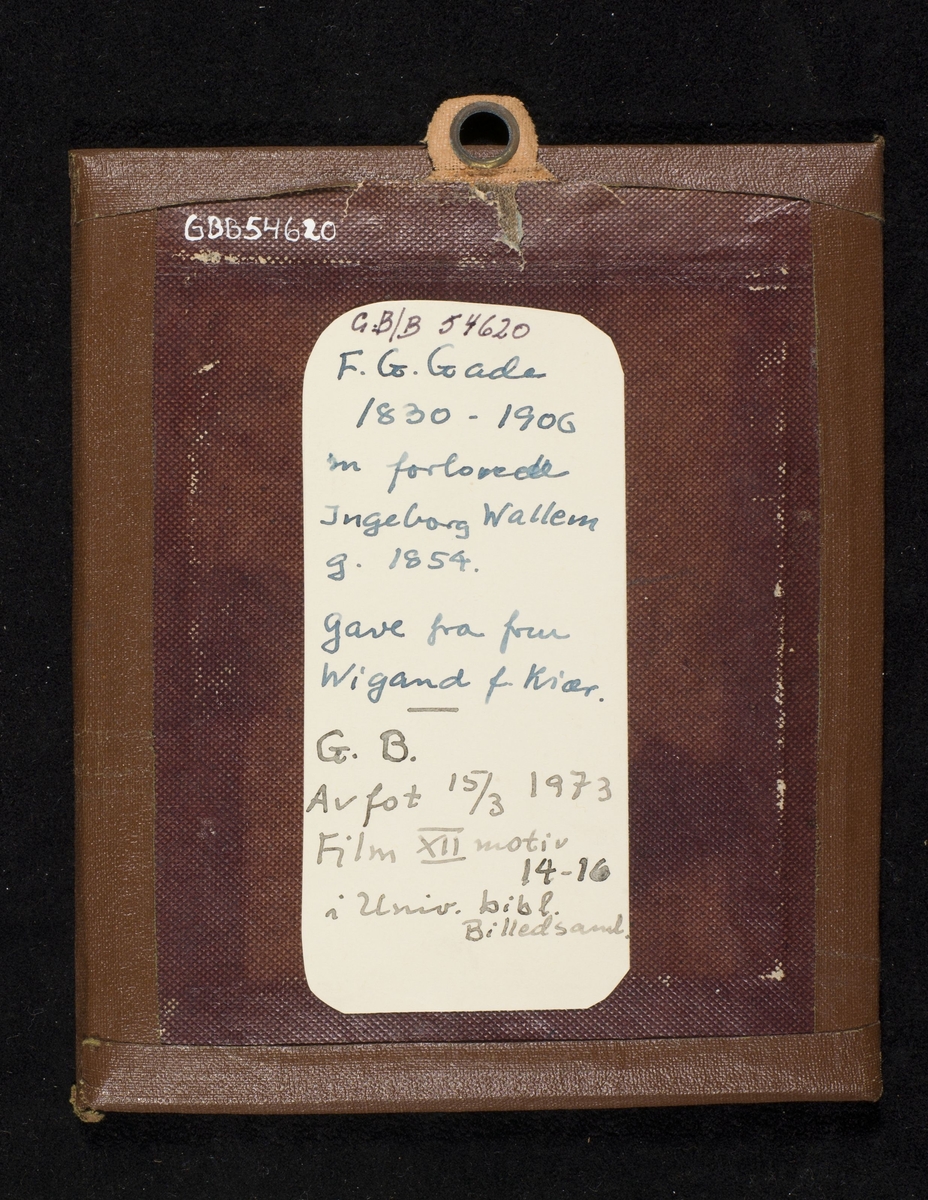 GBB54620
G.B/B 54620
F. G. Gade
1830 - 1906
m forlovede
Ingeborg Wallem
g. 1854.
Gave fra fru
Wigand f. Kiær.
G. B.
Avfot 15/3 1973
Film XII motiv
14-16
i Univ. bibl.
Billedsaml.